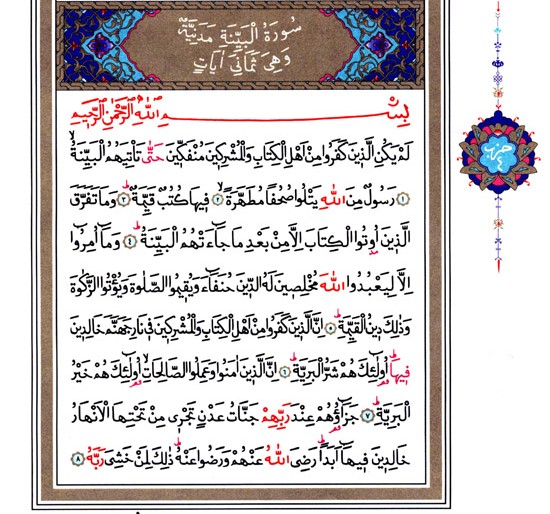 سُورَةُ الْبَيِّنَةِ مَدَنِيَّةٌ
وَهِيَ ثَمَانِي آيَاتٍ
بِسْمِ اللّٰهِ الرَّحْمٰنِ الرَّحِيمِ
لَمْ يَكُنِ الَّذِينَ كَفَرُوا مِنْ اَهْلِ الْكِتَابِ وَالْمُشْرِكِينَ مُنْفَكِّينَ حَتّٰى تَأْتِيَهُمُ الْبَيِّنَةُۙ
﴿١﴾ رَسُولٌ مِنَ اللّٰهِ يَتْلُوا صُحُفًا مُطَهَّرَةًۙ ﴿٢﴾ فِيهَا كُتُبٌ قَيِّمَةٌۜ ﴿٣﴾ وَمَا تَفَرَّقَ
الَّذِينَ اُوتُوا الْكِتَابَ اِلَّا مِنْ بَعْدِ مَا جَٓاءَتْهُمُ الْبَيِّنَةُۜ ﴿٤﴾ وَمَٓا اُمِرُٓوا
اِلَّا لِيَعْبُدُوا اللّٰهَ مُخْلِصِينَ لَهُ الدِّينَ حُنَفَٓاءَ وَيُقِيمُوا الصَّلٰوةَ وَيُؤْتُوا الزَّكٰوةَ
وَذٰلِكَ دِينُ الْقَيِّمَةِۜ ﴿٥﴾ اِنَّ الَّذِينَ كَفَرُوا مِنْ اَهْلِ الْكِتَابِ وَالْمُشْرِكِينَ فِي نَارِ جَهَنَّمَ خَالِدِينَ
فِيهَاۜ اُولٰٓئِكَ هُمْ شَرُّ الْبَرِيَّةِۜ ﴿٦﴾ اِنَّ الَّذِينَ اٰمَنُوا وَعَمِلُوا الصَّالِحَاتِۙ اُولٰٓئِكَ هُمْ خَيْرُ
الْبَرِيَّةِۜ ﴿٧﴾ جَزَٓاؤُهُمْ عِنْدَ رَبِّهِمْ جَنَّاتُ عَدْنٍ تَجْرِي مِنْ تَحْتِهَا الْاَنْهَارُ
خَالِدِينَ فِيهَٓا اَبَدًاۜ رَضِيَ اللّٰهُ عَنْهُمْ وَرَضُوا عَنْهُۜ ذٰلِكَ لِمَنْ خَشِيَ رَبَّهُ ﴿٨﴾
حزب
٤